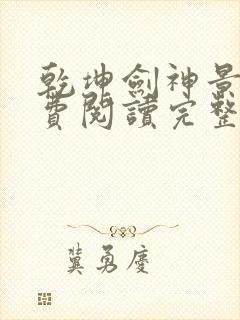 乾坤劍神景
費閱讀完整
冀勇慶